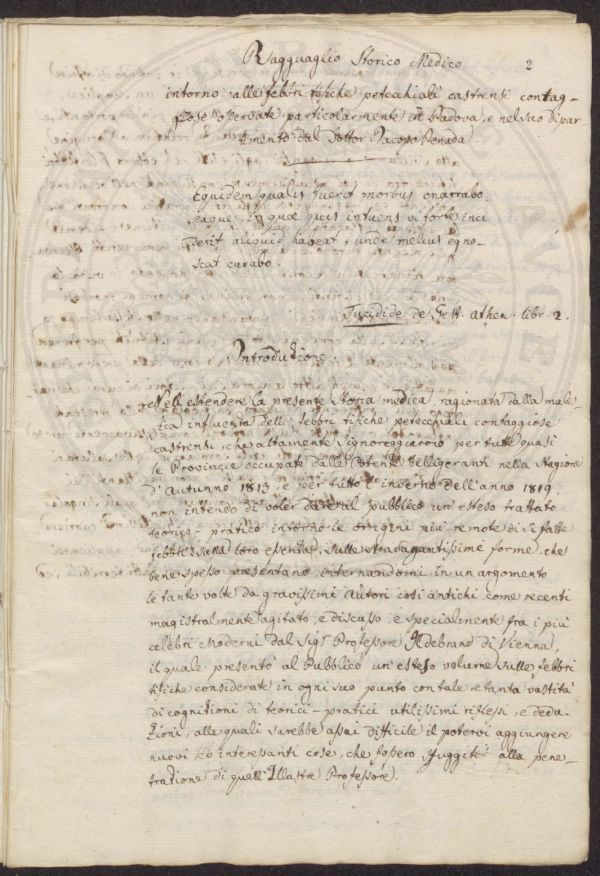 Ragguaglio Storico Medico 2
intorno alle febbri tifiche petecchiali castrensi contag-
giose osservate particolarmente in Padova, e nel suo dipar
timento dal Dottor Jacopo Penada
Equidem qualis fuerit morbus enarrabo,
eaque, in quae quis intuens si forte inci
derit aliquid habeat, unde melius egno-
scat curabo.
Tucidide de Athen. libr. 2.
Introduzione.
Nell'estendere la presente Storia medica, ragionata dalla male-
fica influenza delle febbri tifiche petecchiali contaggiose
castrensi, che altamente signoreggiarono per tutte quasi
le Provincie occupate dalle Potenze belligeranti nella Stagione
d'Autunno 1813, e per tutto l'inverno dell'anno 1814.
non intendo di voler dare al pubblico un'esteso trattato
teorico-pratico intorno le origini più remote di sì fatte
febbri, sulla loro essenza, sulle stravagantissime forme, che
bene spesso presentano, internandomi in un argomento
le tante volte da gravissimi autori così antichi, come recenti
magistralmente agitato, e discusso, e specialmente fra i più
celebri Moderni dal Sigr. Professore Ildebrand di Vienna,
il quale presentò al Pubblico un'esteso volume sulle febbri
tifiche considerate in ogni suo punto con tale, e tanta vastità
di cognizioni di teorici-pratici utilissimi riflessi, e dedu-
zioni, alle quali sarebbe assai difficile il potervi aggiungere
nuovi, ed interessanti cose, che fossero sfuggite alla pene-
trazione di quell'Illustre Professore.